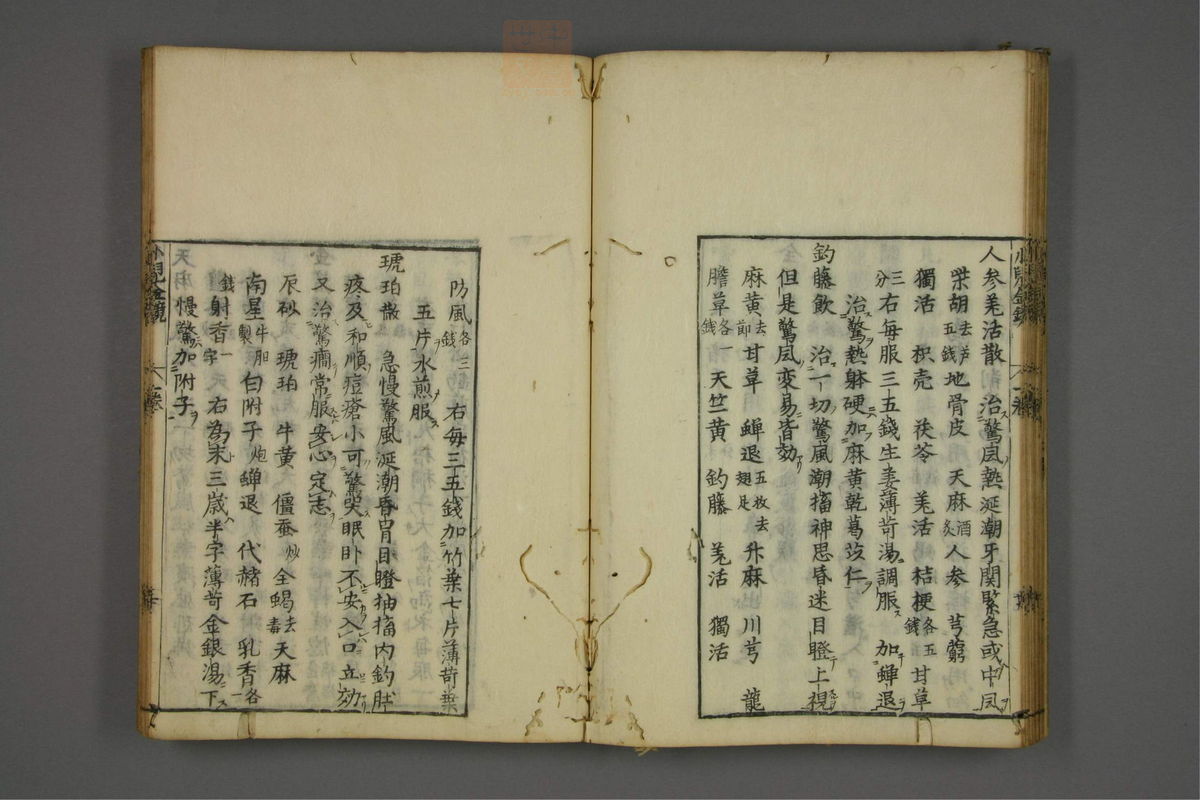 人参羗活散 治驚凨熱涎潮牙関緊急或中凨
柴胡去芦五錢地骨皮 天麻酒炙人参 芎藭
獨活 枳壳 茯苓 羗活 桔梗各五錢甘草
三分右毎服三五錢生姜薄苛湯調服 加蟬退
治驚熱躰硬加麻黄乾葛
釣藤飲 治一切驚風潮搐神思昏迷目瞪上視
但是驚凨変易皆効
麻黄去節甘草 蟬退五枚去翅足升麻 川芎 龍
膽草各一錢 天竺黄 釣藤 羗活 獨活
防風各三錢 右毎三五錢加竹葉七片薄苛葉
五片水煎服
琥珀散 急慢驚風涎潮昏冐目瞪抽搐内釣肚
疼及和順痘瘡小可驚哭眠卧不安入口立効
又治驚癇常服安心定志
辰砂 琥珀 牛黄 僵蚕炒 全蝎去毒 天麻
南星牛胆製 白附子炮蟬退 代赭石 乳香各一
錢射香一字 右為末三歳半字薄苛金銀湯下
慢驚加附子
小児全鏡